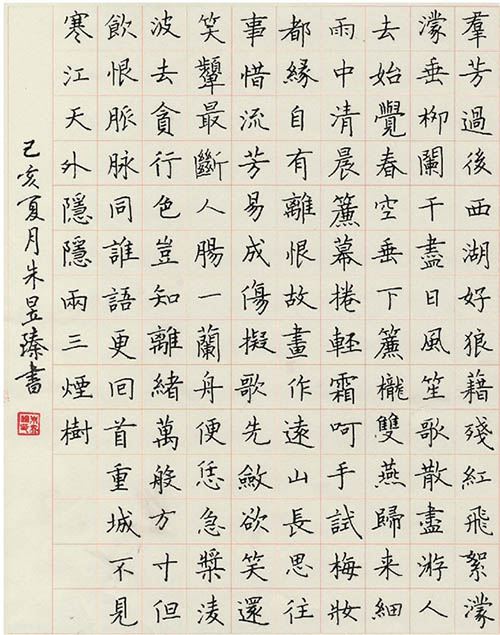 羣芳過後西湖好狼藉殘紅飛絮濛
濛垂柳闌干盡日風笙歌散盡游人
去始覺春空垂下簾櫳雙燕歸来細
雨中清晨簾幕捲輕霜呵手試梅妝
都緣自有離恨故畫作遠山長思往
事惜流芳易成傷擬歌先斂欲笑還
笑顰最斷人腸一蘭舟便恁急槳淩
波去貪行色豈知離緒萬般方寸但
飲恨脈脉同誰語更回首重城不見
寒江天外隱隱兩三煙樹
己亥夏月朱昱臻書